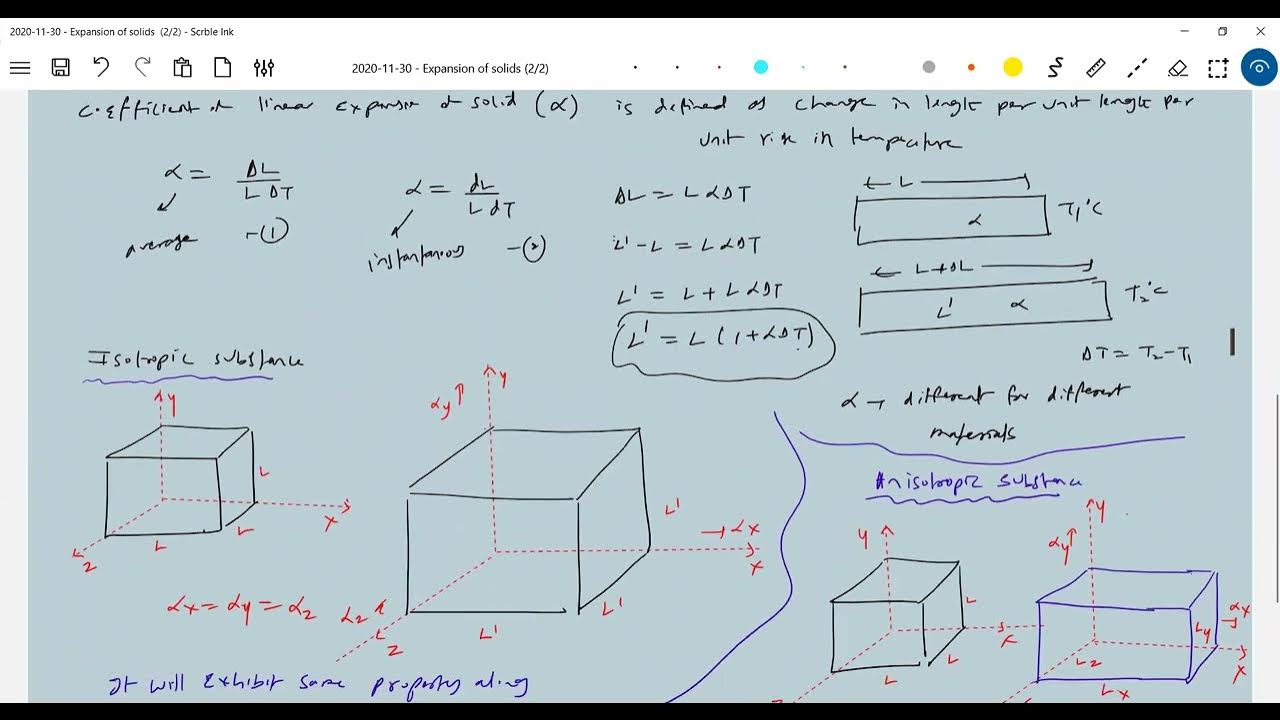 2020-11-30 - Expansion of solids (2/2) - Scrble Ink
2020-11-30 - Expansion of solids (2/2)
coefficient of linear expansion of solid (α) is defined as change in length per unit length per
unit rise in temperature
α = ΔL / L ΔT
average -①
α = dL / L dT
instantaneous -②
ΔL = L α ΔT
L' - L = L α ΔT
L' = L + L α ΔT
L' = L (1 + α ΔT)
L
α T₁°C
L+ΔL
L' α T₂°C
ΔT = T₂ - T₁
α → different for different
materials
Isotropic substance
y
L
x
L
L
z
αx = αy = αz
αy ↑ y
L'
→ αx
x
L'
L'
αz
z
It will exhibit same property along
Anisotropic substance
y
L
x
L
L
αy ↑ y
αx
Ly
x
Lz
Lx